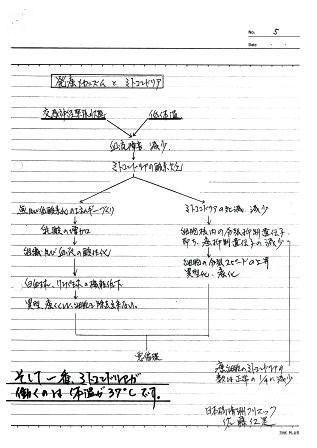 No. 5
Date
発癌メカニズム と ミトコンドリア
交感神経緊張状態
低体温
血流障害 減少
ミトコンドリアの酸素欠乏
無酸素化のエネルギーづくり
乳酸の増加
組織及び血液の酸性化
白血球、リンパ球の機能低下
異型、癌くさい細胞を除去出来ない。
ミトコンドリアの死滅 減少
細胞核内の分裂抑制遺伝子
即ち、癌抑制遺伝子の減少
細胞の分裂スピードの上昇
異型化、癌化
癌細胞のミトコンドリアの
数は正常の1/4に減少
そして一番、ミトコンドリアが
働くのは 体温が37℃です。
佐藤